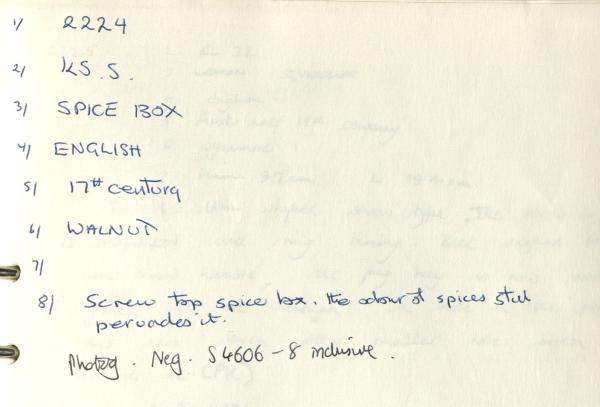 1/ 2224
2/ KS.S.
3/ SPICE BOX
4/ ENGLISH
5/ 17th century
6/ WALNUT
7/
8/ Screw top spice box. the odour of spices still
pervades it.
Photog. Neg. S4606-8 inclusive.